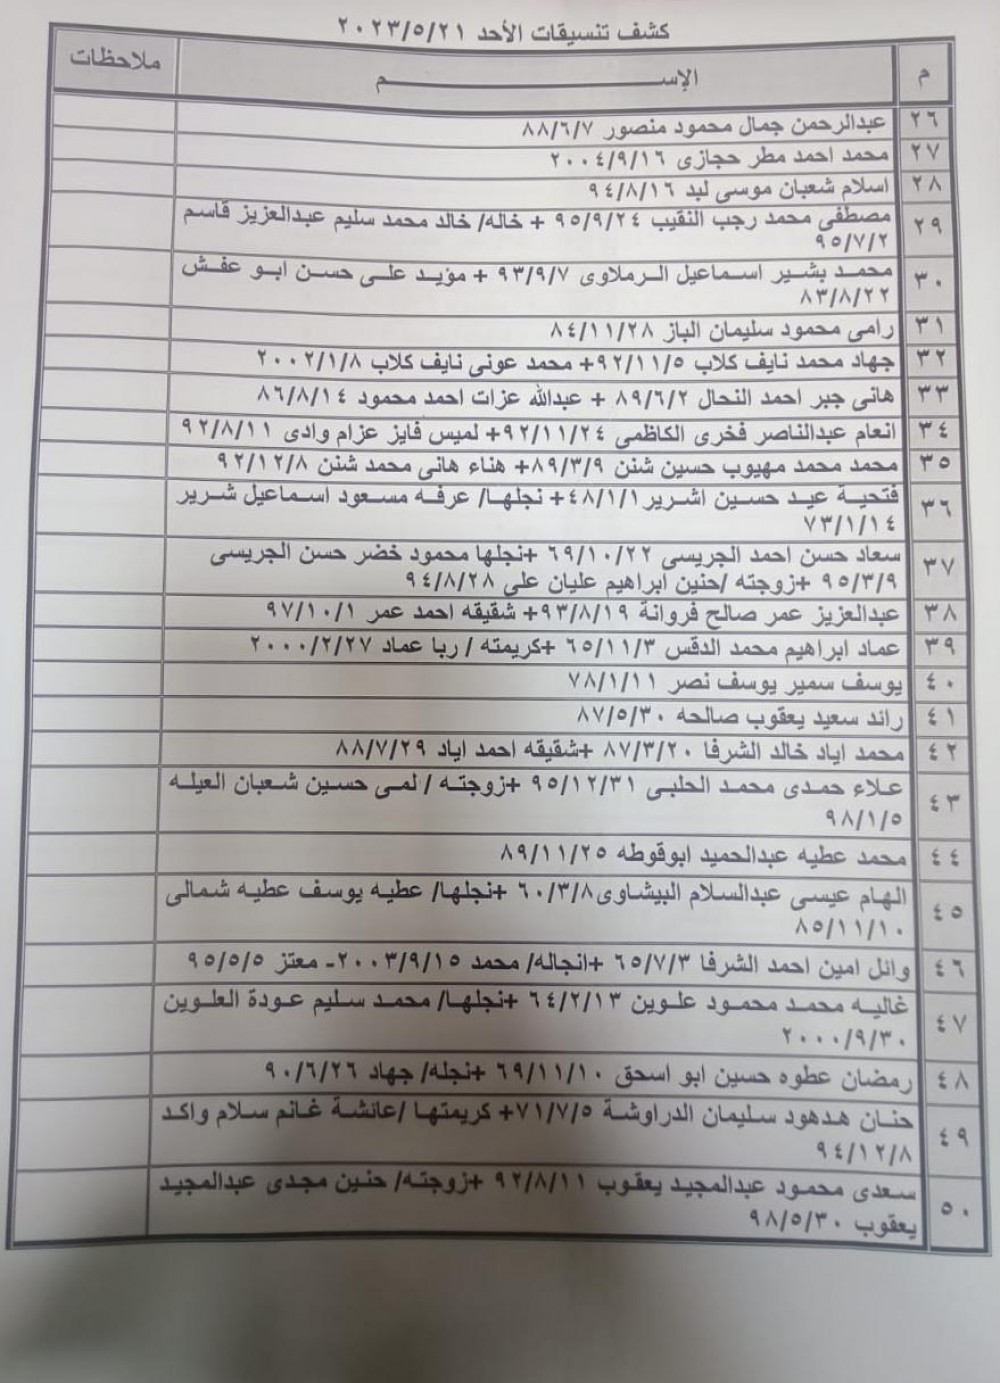 كشف تنسيقات الأحد ٢٠٢٣/٥/٢١
م الإســـــم ملاحظات
٢٦ عبدالرحمن جمال محمود منصور ٨٨/٦/٧
٢٧ محمد احمد مطر حجازى ٢٠٠٤/٩/١٦
٢٨ اسلام شعبان موسى لبد ٩٤/٨/١٦
٢٩ مصطفى محمد رجب النقيب ٩٥/٩/٢٤ + خاله/ خالد محمد سليم عبدالعزيز قاسم
٩٥/٧/٢
٣٠ محمد بشير اسماعيل الرملاوى ٩٣/٩/٧ + مؤيد على حسن ابو عفش
٨٣/٨/٢٢
٣١ رامى محمود سليمان الباز ٨٤/١١/٢٨
٣٢ جهاد محمد نايف كلاب ٩٢/١١/٥+ محمد عونى نايف كلاب ٢٠٠٢/١/٨
٣٣ هانى جبر احمد النحال ٨٩/٦/٢ + عبدالله عزات احمد محمود ٨٦/٨/١٤
٣٤ انعام عبدالناصر فخرى الكاظمى ٩٢/١١/٢٤+ لميس فايز عزام وادى ٩٢/٨/١١
٣٥ محمد محمد مهيوب حسين شنن ٨٩/٣/٩+ هناء هانى محمد شنن ٩٢/١٢/٨
٣٦ فتحية عيد حسين اشرير٤٨/١/١+ نجلها/ عرفه مسعود اسماعيل شرير
٧٣/١/١٤
٣٧ سعاد حسن احمد الجريسى ٦٩/١٠/٢٢ +نجلها محمود خضر حسن الجريسى
٩٥/٣/٩ +زوجته /حنين ابراهيم عليان على ٩٤/٨/٢٨
٣٨ عبدالعزيز عمر صالح فروانة ٩٣/٨/١٩+ شقيقه احمد عمر ٩٧/١٠/١
٣٩ عماد ابراهيم محمد الدقس ٦٥/١١/٣ +كريمته / ربا عماد ٢٠٠٠/٢/٢٧
٤٠ يوسف سمير يوسف نصر ٧٨/١/١١
٤١ رائد سعيد يعقوب صالحه ٨٧/٥/٣٠
٤٢ محمد اياد خالد الشرفا ٨٧/٣/٢٠ +شقيقه احمد اياد ٨٨/٧/٢٩
٤٣ علاء حمدى محمد الحلبى ٩٥/١٢/٣١ +زوجته / لمى حسين شعبان العيله
٩٨/١/٥
٤٤ محمد عطيه عبدالحميد ابوقوطه ٨٩/١١/٢٥
٤٥ الهام عيسى عبدالسلام البيشاوى٦٠/٣/٨ +نجلها/ عطيه يوسف عطيه شمالى
٨٥/١١/١٠
٤٦ وائل امين احمد الشرفا ٦٥/٧/٣ +انجاله/ محمد ٢٠٠٣/٩/١٥- معتز ٩٥/٥/٥
٤٧ غاليه محمد محمود علوين ٦٤/٢/١٣ +نجلها/ محمد سليم عودة العلوين
٢٠٠٠/٩/٣٠
٤٨ رمضان عطوه حسين ابو اسحق ٦٩/١١/١٠ +نجله/ جهاد ٩٠/٦/٢٦
٤٩ حنان هدهود سليمان الدراوشة ٧١/٧/٥+ كريمتها /عائشة غانم سلام واكد
٩٤/١٢/٨
٥٠ سعدى محمود عبدالمجيد يعقوب ٩٢/٨/١١ +زوجته/ حنين مجدى عبدالمجيد
يعقوب ٩٨/٥/٣٠